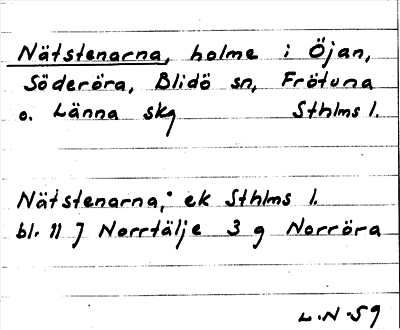 Nätstenarna, holme i Öjan,
Söderöra, Blidö sn, Frötuna
o. Länna skg Sthlms l.
Nätstenarna, ek Sthlms l.
bl. 11 J Norrtälje 3 g Norröra
L.N. 59